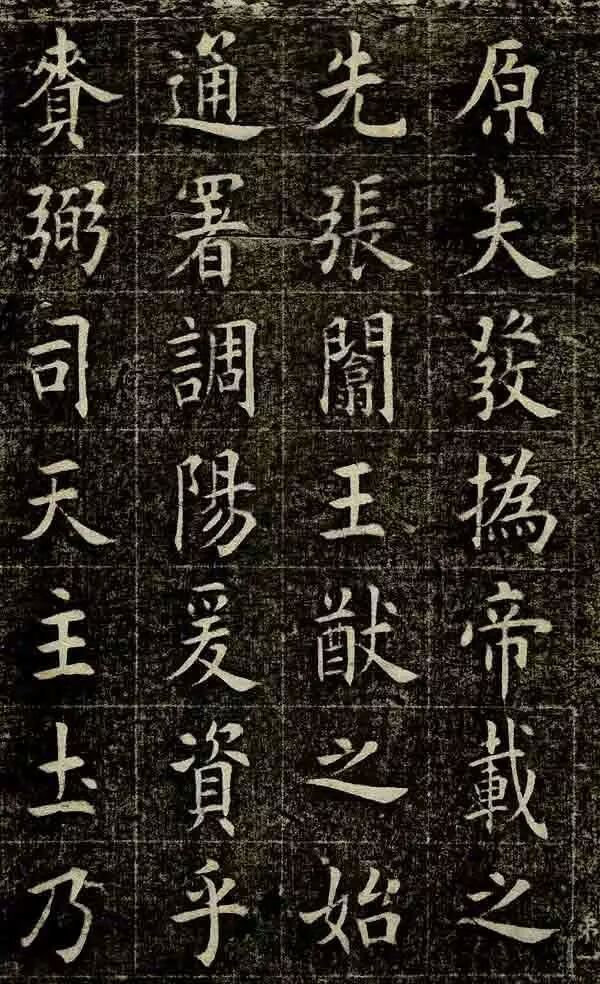 原夫發撝帝載之
先張闟王猷之始
通署調陽爰資乎
賚弼司天主圡乃
弟一